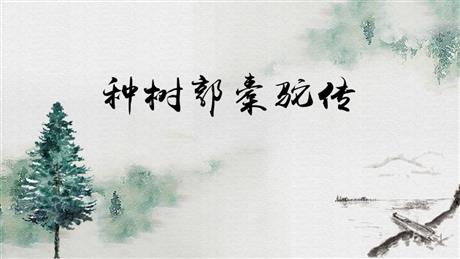 种树郭橐驼传